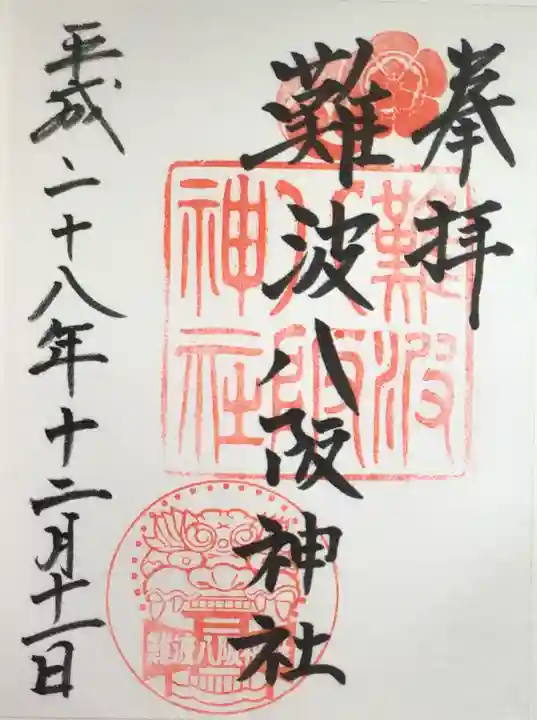 奉拝
難波八阪神社
難波
八阪
神社
難波八阪神社
平成二十八年十二月十一日